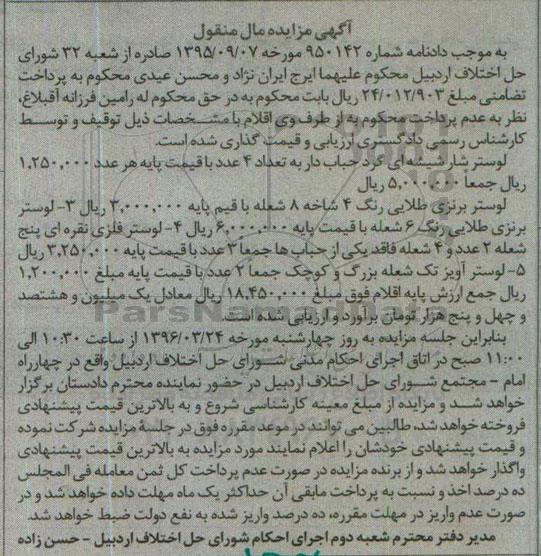 آگهی مزایده مال منقول
به موجب دادنامه شماره ۹۵۰۱۴۲ مورخه ۱۳۹۵/۰۹/۰۷ صادره از شعبه ۳۲ شورای
حل اختلاف اردبیل محکوم علیهما ایرج ایران نژاد و محسن عیدی محکوم به پرداخت
تضامنی مبلغ ۲۴/۰۱۲/۹۰۳ ریال بابت محکوم به در حق محکوم له رامین فرزانه آقبلاغ،
نظر به عدم پرداخت محکوم به از طرف وی اقلام با مشخصات ذیل توقیف و توسط
کارشناس رسمی دادگستری ارزیابی و قیمت گذاری شده است.
لوستر پشار شیشه ای گرد حباب دار به تعداد ۴ عدد با قیمت پایه هر عدد ۱,۲۵۰,۰۰۰
ریال جمعا ۵,۰۰۰,۰۰۰ ریال
لوستر برنزی طلایی رنگ ۴ شاخه ۸ شعله با قیم پایه ۳,۰۰۰,۰۰۰ ریال ۳- لوستر
برنزی طلایی رنگ ۶ شعله با قیمت پایه ۶,۰۰۰,۰۰۰ ریال ۴- لوستر فلزی نقره ای پنج
شعله ۲ عدد و ۴ شعله فاقد یکی از حباب ها جمعا ۳ عدد با قیمت پایه ۳,۲۵۰,۰۰۰ ریال
۵- لوستر آویز تک شعله بزرگ و کوچک جمعا ۲ عدد با قیمت پایه مبلغ ۱,۲۰۰,۰۰۰
ریال جمع ارزش پایه اقلام فوق مبلغ ۱۸,۴۵۰,۰۰۰ ریال معادل یک میلیون و هشتصد
و چهل و پنج هزار تومان برآورد و ارزیابی شده است.
بنابراین جلسه مزایده به روز چهارشنبه مورخه ۱۳۹۶/۰۳/۲۴ از ساعت ۱۰:۳۰ الی
۱۱:۰۰ صبح در اتاق اجرای احکام مدنی شورای حل اختلاف اردبیل واقع در چهارراه
امام - مجتمع شورای حل اختلاف اردبیل در حضور نماینده محترم دادستان برگزار
خواهد شد و مزایده از مبلغ معینه کارشناسی شروع و به بالاترین قیمت پیشنهادی
فروخته خواهد شد، طالبین می توانند در موعد مقرره فوق در جلسهٔ مزایده شرکت نموده
و قیمت پیشنهادی خودشان را اعلام نمایند مورد مزایده به بالاترین قیمت پیشنهادی
واگذار خواهد شد و از برنده مزایده در صورت عدم پرداخت کل ثمن معامله فی المجلس
ده درصد اخذ و نسبت به پرداخت مابقی آن حداکثر یک ماه مهلت داده خواهد شد و در
صورت عدم واریز در مهلت مقرره، ده درصد واریز شده به نفع دولت ضبط خواهد شد.
مدیر دفتر محترم شعبه دوم اجرای احکام شورای حل اختلاف اردبیل - حسن زاده